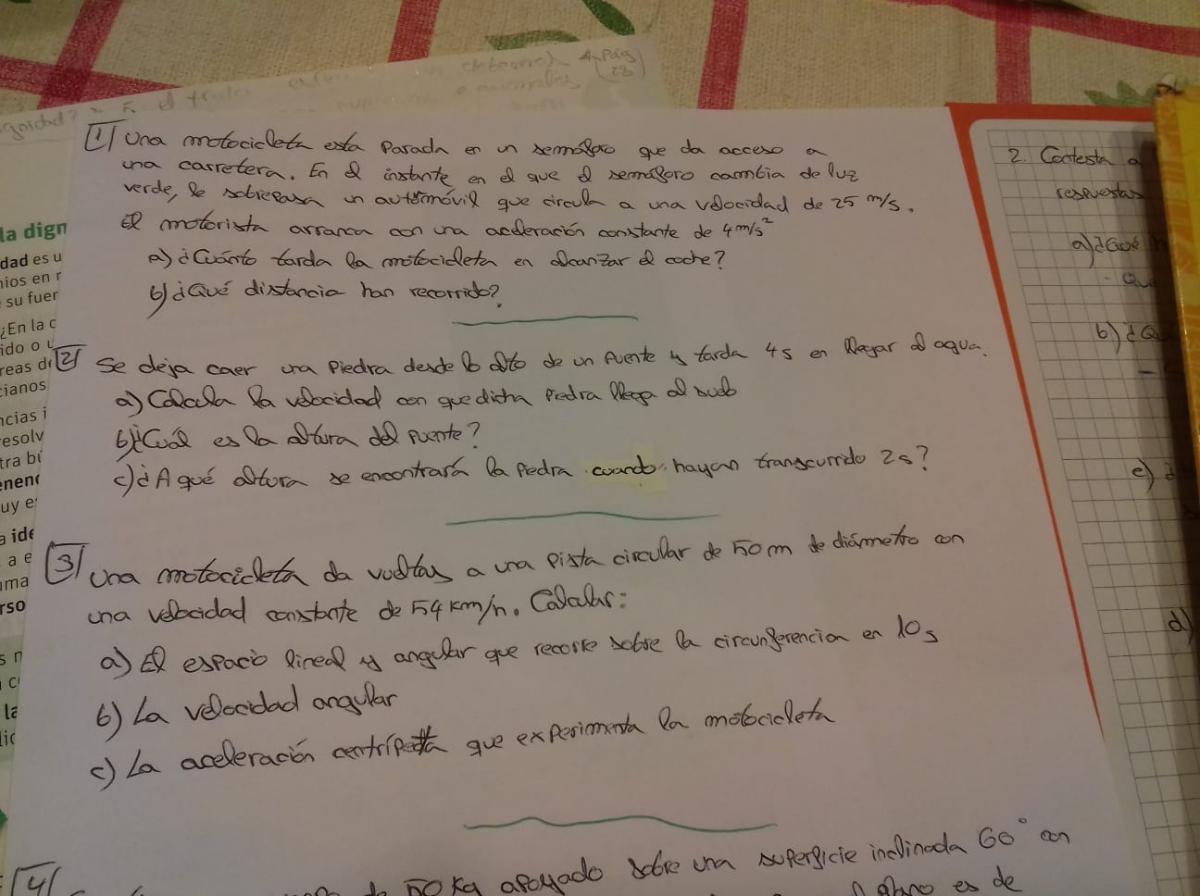 Pág
23
F. el
1 Una motocicleta está parada en un semáforo que da acceso a
una carretera. En el instante en el que el semáforo cambia de luz
verde, le sobrepasa un automóvil que circula a una velocidad de 25 m/s.
El motorista arranca con una aceleración constante de 4 m/s²
a) ¿Cuánto tarda la motocicleta en alcanzar el coche?
b) ¿Qué distancia han recorrido?
2 Se deja caer una piedra desde lo alto de un puente y tarda 4s en llegar al agua.
a) Calcula la velocidad con que dicha piedra llega al suelo
b) ¿Cuál es la altura del puente?
c) ¿A qué altura se encontrará la piedra cuando hayan transcurrido 2s?
3 Una motocicleta da vueltas a una pista circular de 50m de diámetro con
una velocidad constante de 54 km/h. Calcular:
a) El espacio lineal y angular que recorre sobre la circunferencion en 10s
b) La velocidad angular
c) La aceleración centrípeta que experimenta la motocicleta
4
de 50 kg apoyado sobre una superficie inclinada 60° con
es de
la dign
dad es u
nios en r
su fuer
¿En la c
ido o u
reas de
cianos
ncias i
esolv
tra bú
nenc
uy e
a ide
a e
ma
rso
s n
c
la
lic
2. Contesta a
respuestas
a) ¿Qué
- Qu
b) ¿Qu
c) ¿
d)